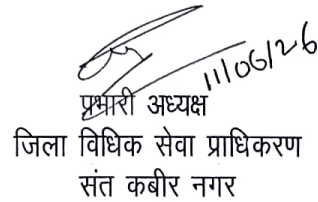 11/06/26
प्रभारी अध्यक्ष
जिला विधिक सेवा प्राधिकरण
संत कबीर नगर